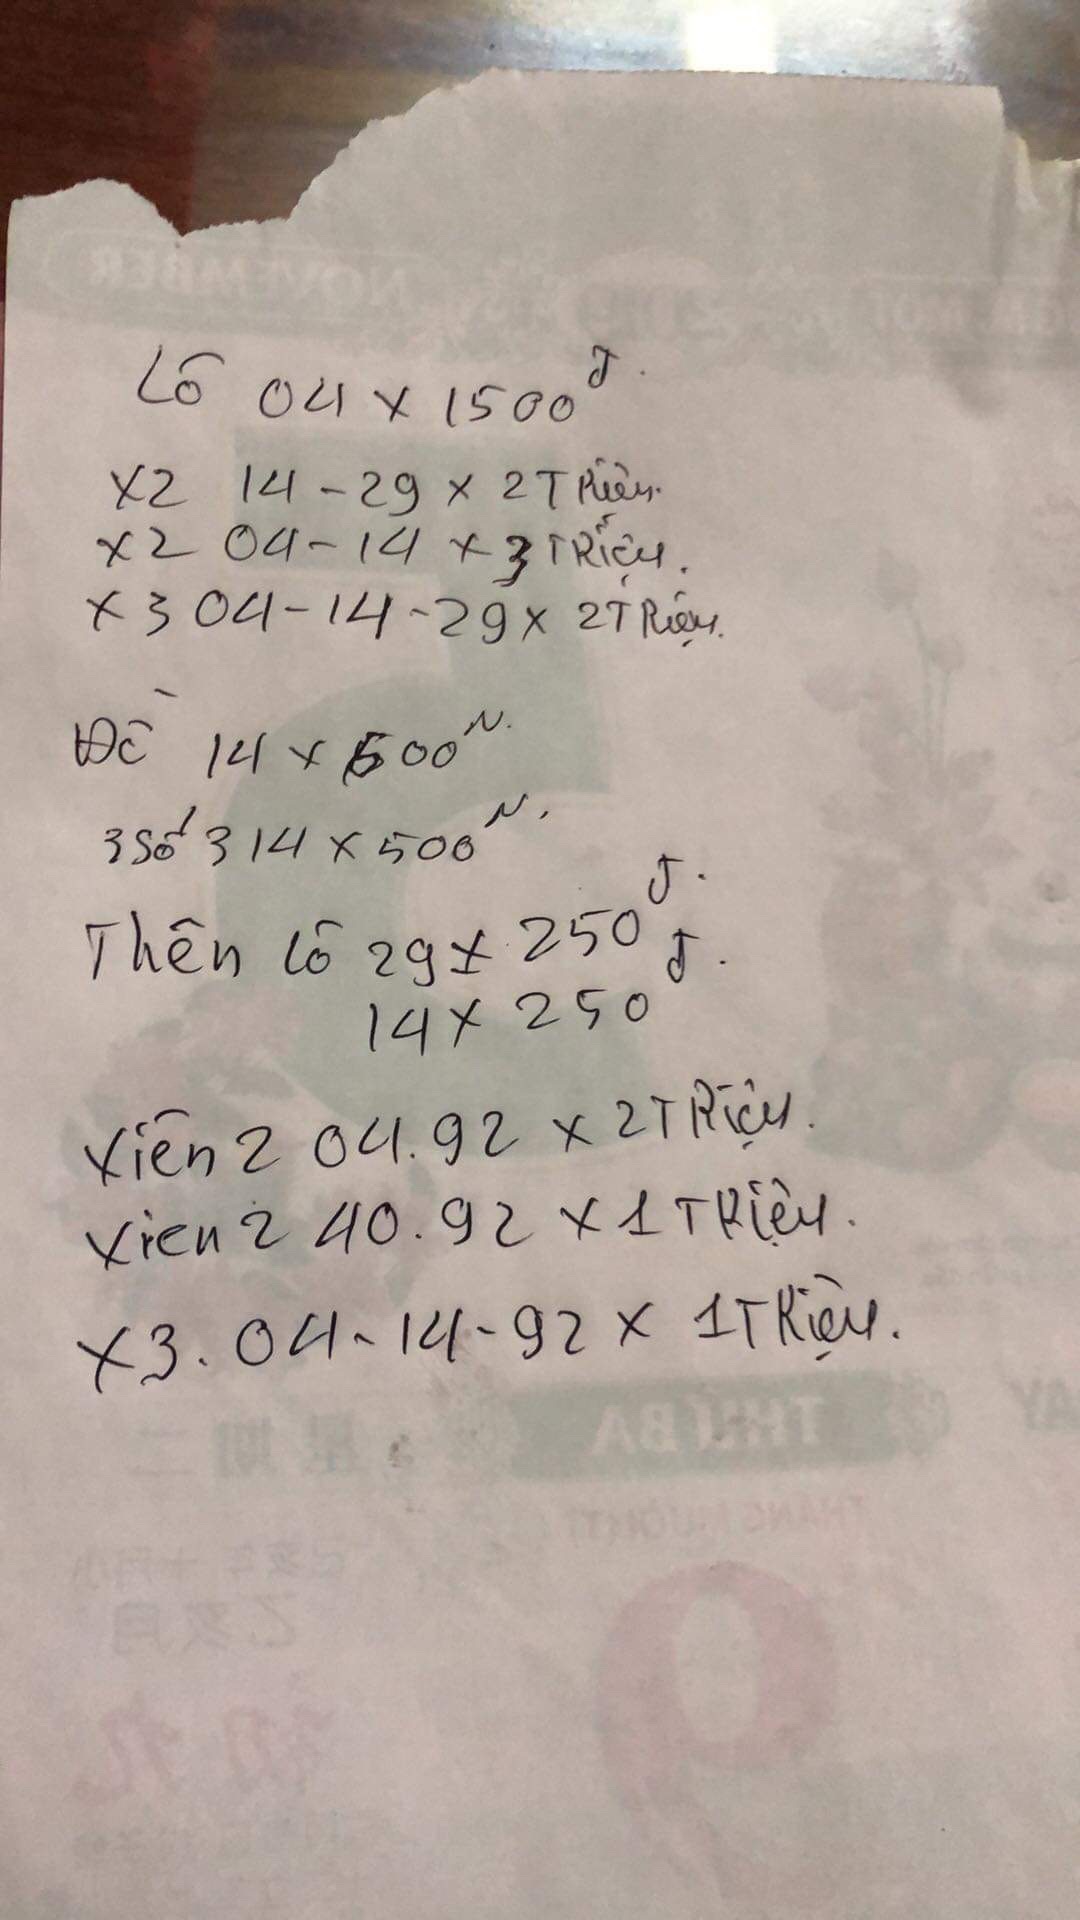 NOVEMBER
Lô 04 x 1500đ.
x2 14 - 29 x 2Triệu.
x2 04 - 14 x 3Triệu.
x3 04 - 14 - 29 x 2Triệu.
Đề 14 x 500N.
3 Số 314 x 500N.
Thên lô 29 x 250đ.
14 x 250đ.
Xiên 2 04.92 x 2Triệu.
Xien 2 40.92 x 1Triệu.
x3. 04 - 14 - 92 x 1Triệu.
THỨ BA
星期二
9